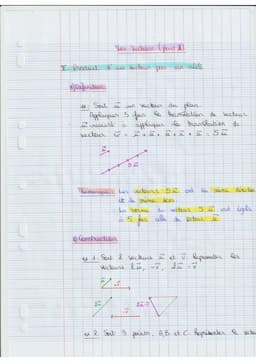 Les vecteurs (part II)
I. Produit d'un vecteur par un réel
a) Définition
ex: Soit u un vecteur du plan.
Appliquer 5 fois la translation de vecteur
u revient à appliquer la translation de
vecteur v = u + u + u + u + u = 5u
u
5u
Remarque: Les vecteurs 5u ont la même direction
et le même sens.
La norme du vecteur 5u est égale
à 5 fois celle du vecteur u
b) Construction
ex 1: Soit 2 vecteurs u et v. Représenter les
vecteurs 2u, -v, 2u - v
u
v
2u
-v
2u-v
ex 2: Soit 3 points, A, B et C. Représenter le vecteur